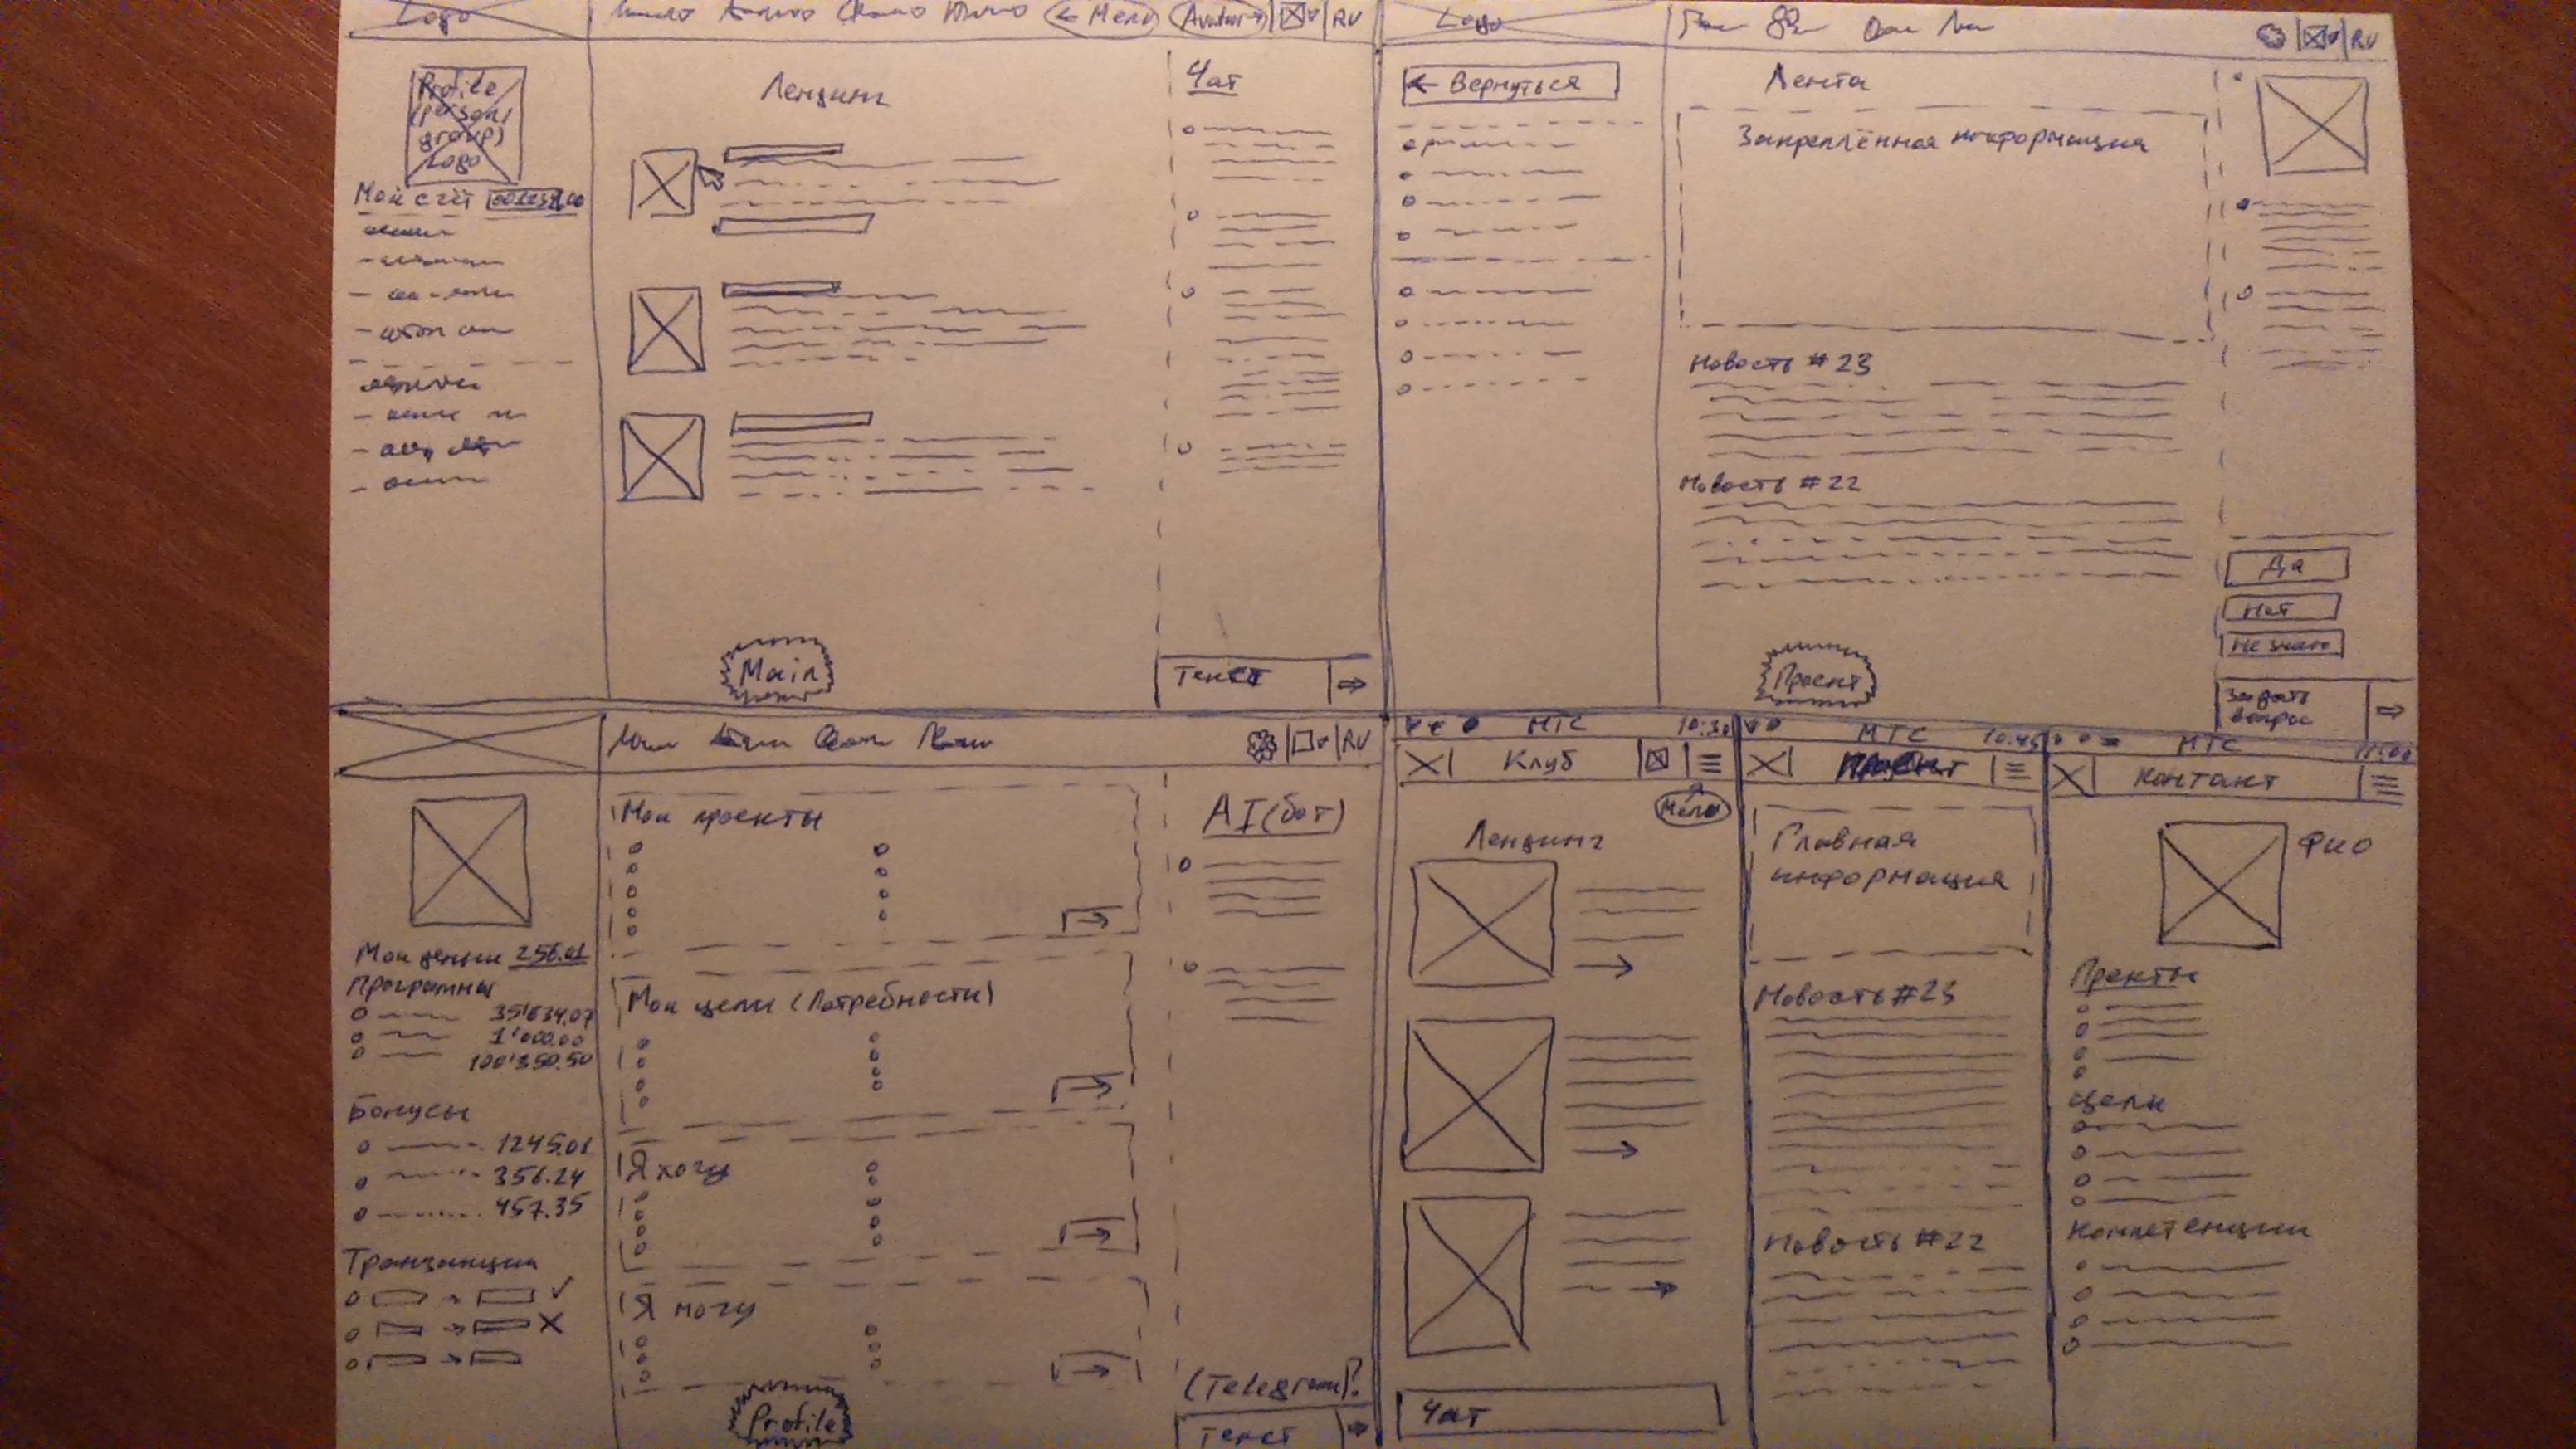 Logo
← Menu
Avatar →
RU
Profile
(person/
group)
Logo
Мой счёт
Лендинг
Чат
Main
Текст
Logo
RU
← Вернуться
Лента
Закреплённая информация
Новость #23
Новость #22
Да
Нет
Не знаю
Задать
вопрос
Проект
RU
Мои деньги 256.01
Программы
35'634.07
1'000.00
100'350.50
Бонусы
1245.01
356.24
457.35
Транзакции
Мои проекты
Мои цели (Потребности)
Я хочу
Я могу
Profile
AI (бот)
(Telegram)?
Текст
МТС 10:30
Клуб
Меню
Лендинг
Чат
МТС 10:45
Проект
Главная
информация
Новость #23
Новость #22
МТС
Контакт
ФИО
Пректы
Цели
Компетенции